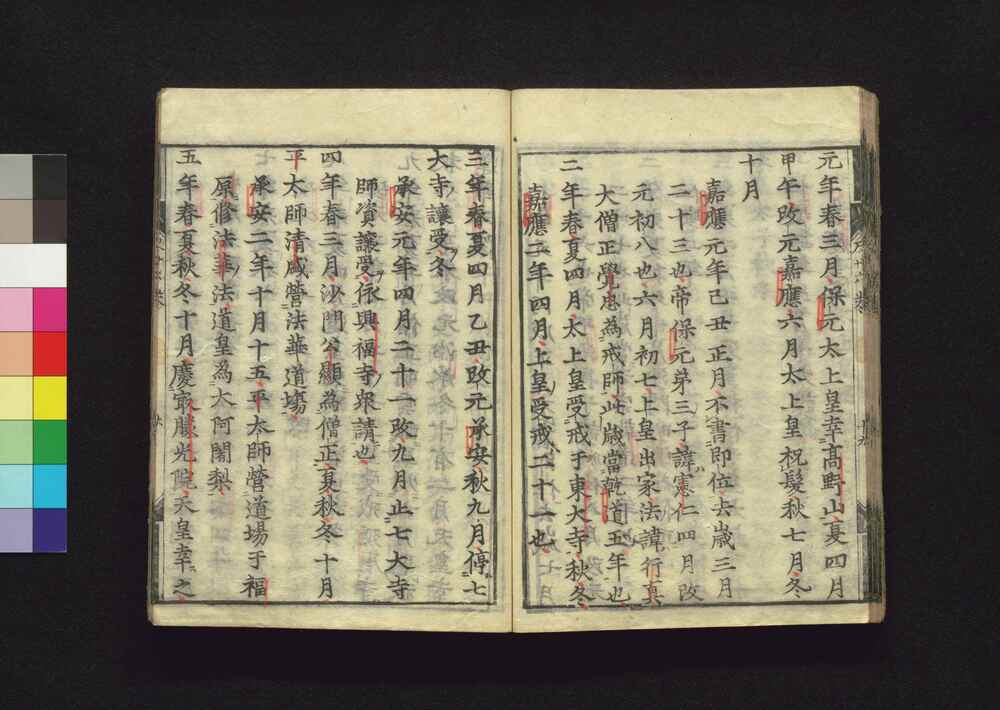 元年春三月保元太上皇幸高野山夏四月
甲午改元嘉應六月太上皇祝髮秋七月冬
十月
嘉應元年己丑正月不書即位去歲三月
二十三也帝保元第三子諱憲仁四月改
元初八也六月初七上皇出家法諱行真
大僧正覺忠為戒師此歲當乾道五年也
二年春夏四月太上皇受戒于東大寺秋冬
嘉應二年四月上皇受戒二十一也
三年春夏四月乙丑改元承安秋九月停七
大寺讓受冬
承安元年四月二十一改九月止七大寺
師資讓受依興福寺衆請也
四年春三月沙門公顯為僧正夏秋冬十月
平太師清盛營法華道場
承安二年十月十五平太師營道場于福
原修法華法道皇為大阿闍梨
五年春夏秋冬十月慶最勝光院天皇幸之